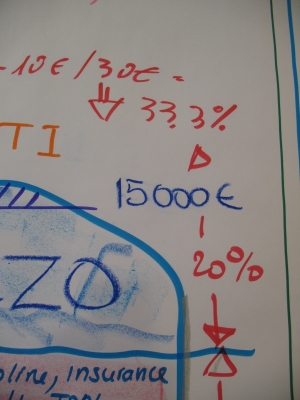 -10€/30€ =
33.3%
TI
15000€
20%
ZZO
line, insurance